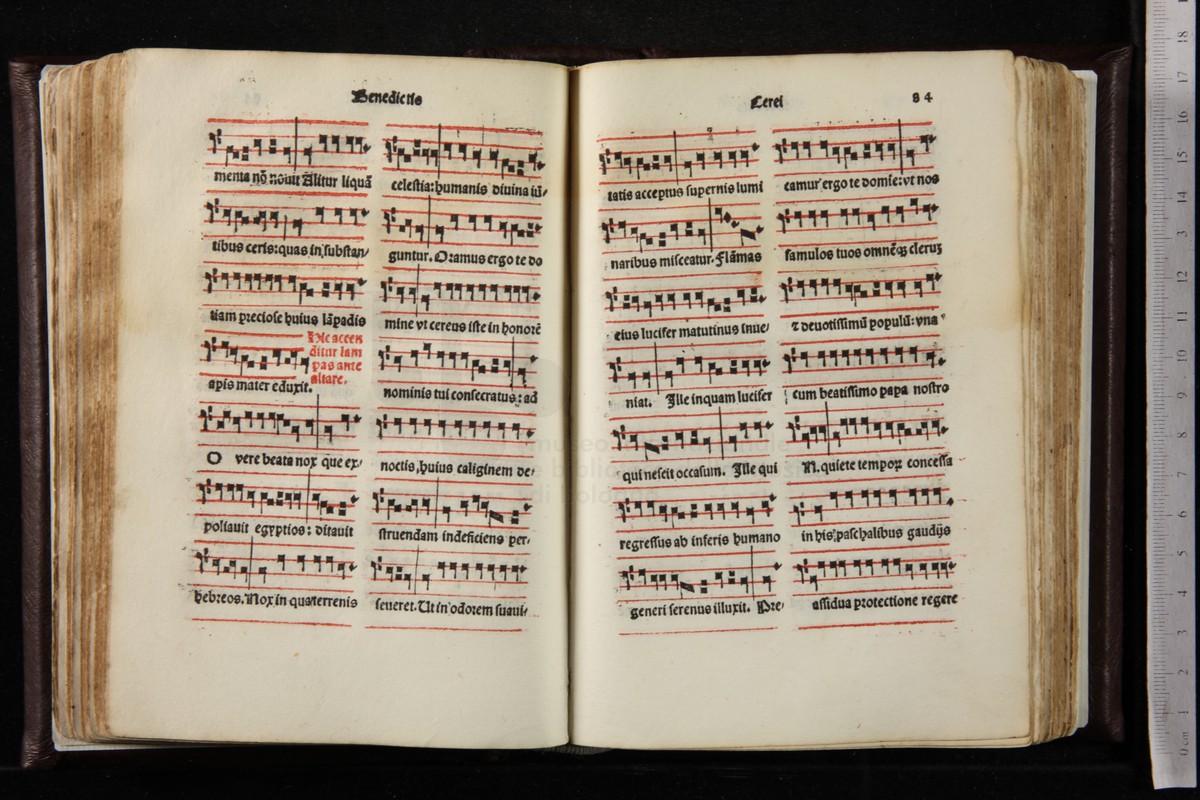 Benedictio
menta nō nouit Alitur liquā
tibus ceris: quas in substan/
tiam preciose huius lāpadis
apis mater eduxit.
Hic accen
ditur lam
pas ante
altare.
O vere beata nox que ex/
poliauit egyptios: ditauit
hebreos. Nox in qua terrenis
celestia: humanis diuina iū/
guntur. Oramus ergo te do
mine vt cereus iste in honorē
nominis tui consecratus: ad
noctis huius caliginem de/
struendam indeficiens per/
seueret. Ut in odorem suaui/
Cerei 84
tatis acceptus supernis lumi
naribus misceatur. Flāmas
eius lucifer matutinus inue/
niat. Ille inquam lucifer
qui nescit occasum. Ille qui
regressus ab inferis humano
generi serenus illuxit. Pre/
camur ergo te domie: vt nos
famulos tuos omnēqȝ cleruȝ
⁊ deuotissimū populū: vna
cum beatissimo papa nostro
N. quiete tempoꝝ concessa
in his paschalibus gaudijs
assidua protectione regere